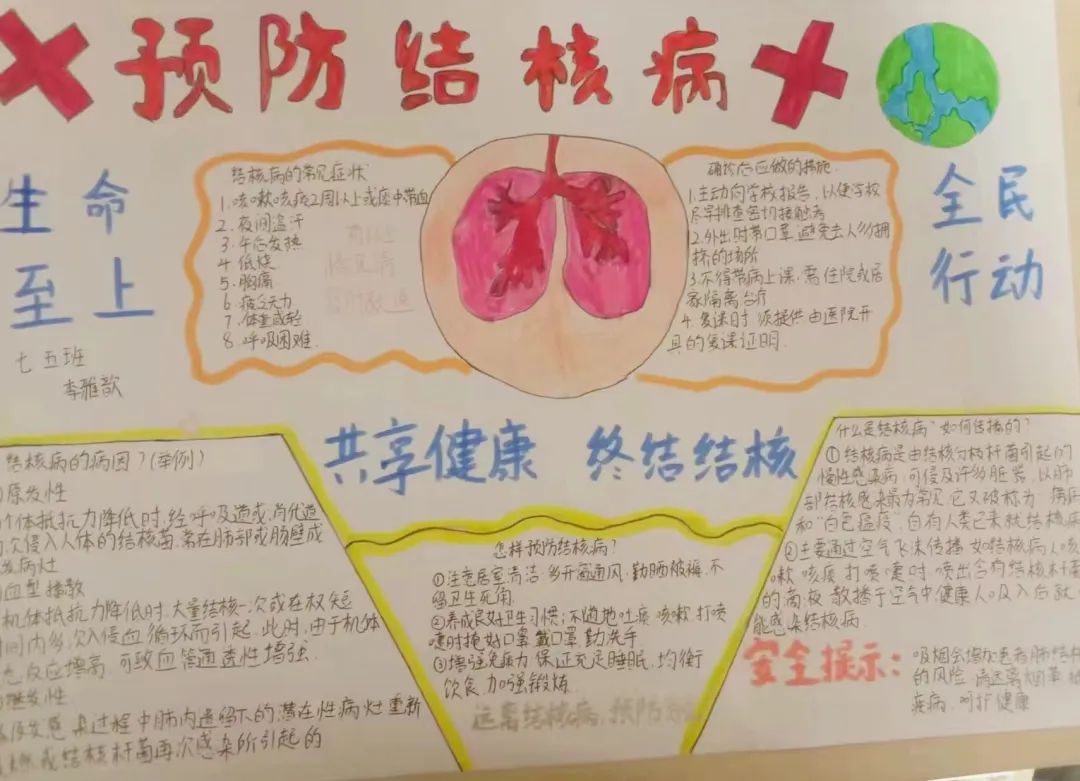 预防结核病
生命
至上
七五班
李雅歆
结核病的常见症状
1.咳嗽咳痰2周以上或痰中带血
2.夜间盗汗
3.午后发热
4.低烧
5.胸痛
6.疲乏无力
7.体重减轻
8.呼吸困难
确诊后应做的措施
1.主动向学校报告,以便学校
尽早排查密切接触者
2.外出时带口罩,避免去人多拥
挤的场所
3.不得带病上课,需住院或居
家隔离治疗
4.复课时须提供由医院开
具的复课证明.
全民
行动
共享健康 终结结核
结核病的病因?(举例)
原发性
个体抵抗力降低时,经呼吸道或消化道
次侵入人体的结核菌,常在肺部或肠壁成
发病灶
血型播散
机体抵抗力降低时,大量结核一次或在较短
时间内多次入侵血循环而引起.此时,由于机体
态反应增高,可致血管通透性增强.
继发性
原发感染过程中肺内遗留下的潜在性病灶重新
燃或结核杆菌再次感染所引起的
怎样预防结核病?
①注意居室清洁,多开窗通风,勤晒被褥,不
留卫生死角.
②养成良好卫生习惯;不随地吐痰 咳嗽 打喷
嚏时掩好口罩 戴口罩 勤洗手
③增强免疫力 保证充足睡眠,均衡
饮食,加强锻炼.
远离结核病,预防
什么是结核病?如何传播的?
①结核病是由结核分枝杆菌引起的
慢性感染病,可侵及许多脏器,以肺
部结核感染最为常见,它又被称为"痨病"
和"白色瘟疫",自有人类已来就结核病
②主要通过空气飞沫传播 如结核病人咳
嗽 咳痰 打喷嚏时 喷出含有结核杆菌
的滴液 散播于空气中健康人吸入后就
能感染结核病.
安全提示:
吸烟会增加患者肺结核
的风险,请远离烟草
疾病,呵护健康